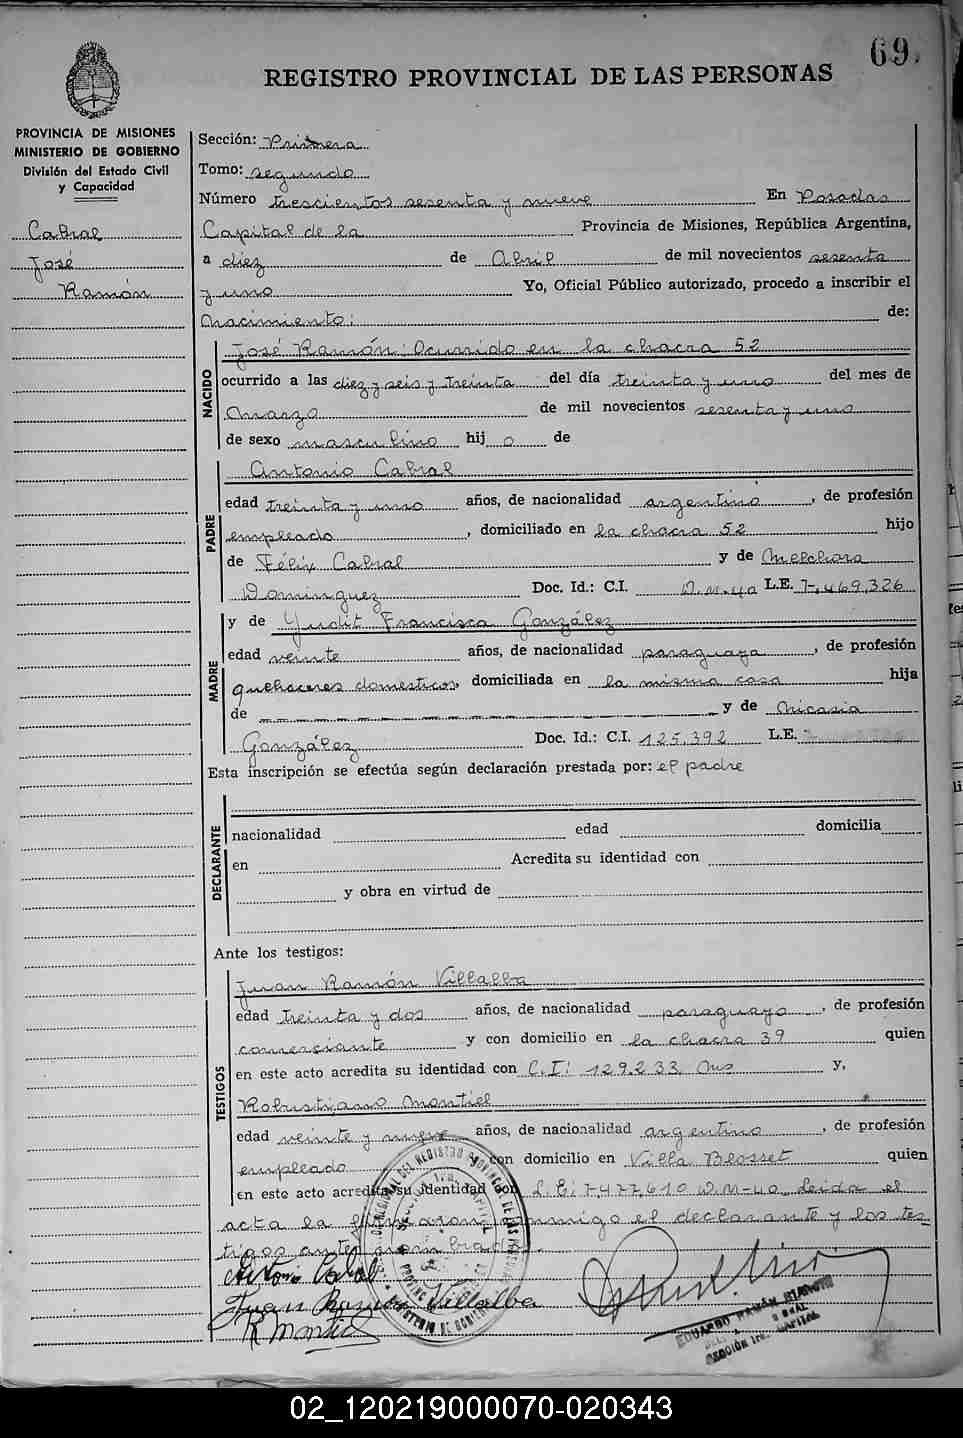 69.
REGISTRO PROVINCIAL DE LAS PERSONAS
PROVINCIA DE MISIONES
MINISTERIO DE GOBIERNO
División del Estado Civil
y Capacidad
Cabral
José
Ramón
Sección: Primera
Tomo: segundo
Número trescientos sesenta y nueve En Posadas
Capital de la Provincia de Misiones, República Argentina,
a diez de Abril de mil novecientos sesenta
y uno Yo, Oficial Público autorizado, procedo a inscribir el
Nacimiento: de:
NACIDO
José Ramón: Ocurrido en la chacra 52
ocurrido a las diez y seis y treinta del día treinta y uno del mes de
Marzo de mil novecientos sesenta y uno
de sexo masculino hijo de
PADRE
Antonio Cabral
edad treinta y uno años, de nacionalidad argentino, de profesión
empleado, domiciliado en la chacra 52 hijo
de Félix Cabral y de Melchora
Dominguez Doc. Id.: C.I. D.M.40 L.E. 7.469.326
MADRE
y de Yudit Francisca González
edad veinte años, de nacionalidad paraguaya, de profesión
quehaceres domesticos, domiciliada en la misma casa hija
de y de Nicasia
González Doc. Id.: C.I. 125.392 L.E.
Esta inscripción se efectúa según declaración prestada por: el padre
DECLARANTE
nacionalidad edad domicilia
en Acredita su identidad con
y obra en virtud de
Ante los testigos:
TESTIGOS
Juan Ramón Villalba
edad treinta y dos años, de nacionalidad paraguayo, de profesión
comerciante y con domicilio en la chacra 39 quien
en este acto acredita su identidad con C.I: 129.233 Mns y,
Robustiano Montiel
edad veinte y nueve años, de nacionalidad argentino, de profesión
empleado y con domicilio en Villa Blosset quien
en este acto acredita su identidad con L.E: 7.477.610 D.M-40. Leida el
acta la firmaron conmigo el declarante y los tes-
tigos antes nombrados.
Antonio Cabral
Juan Ramón Villalba
R Montiel
EDUARDO RAMÓN
SECCIÓN 1ra. CAPITAL
02_120219000070-020343